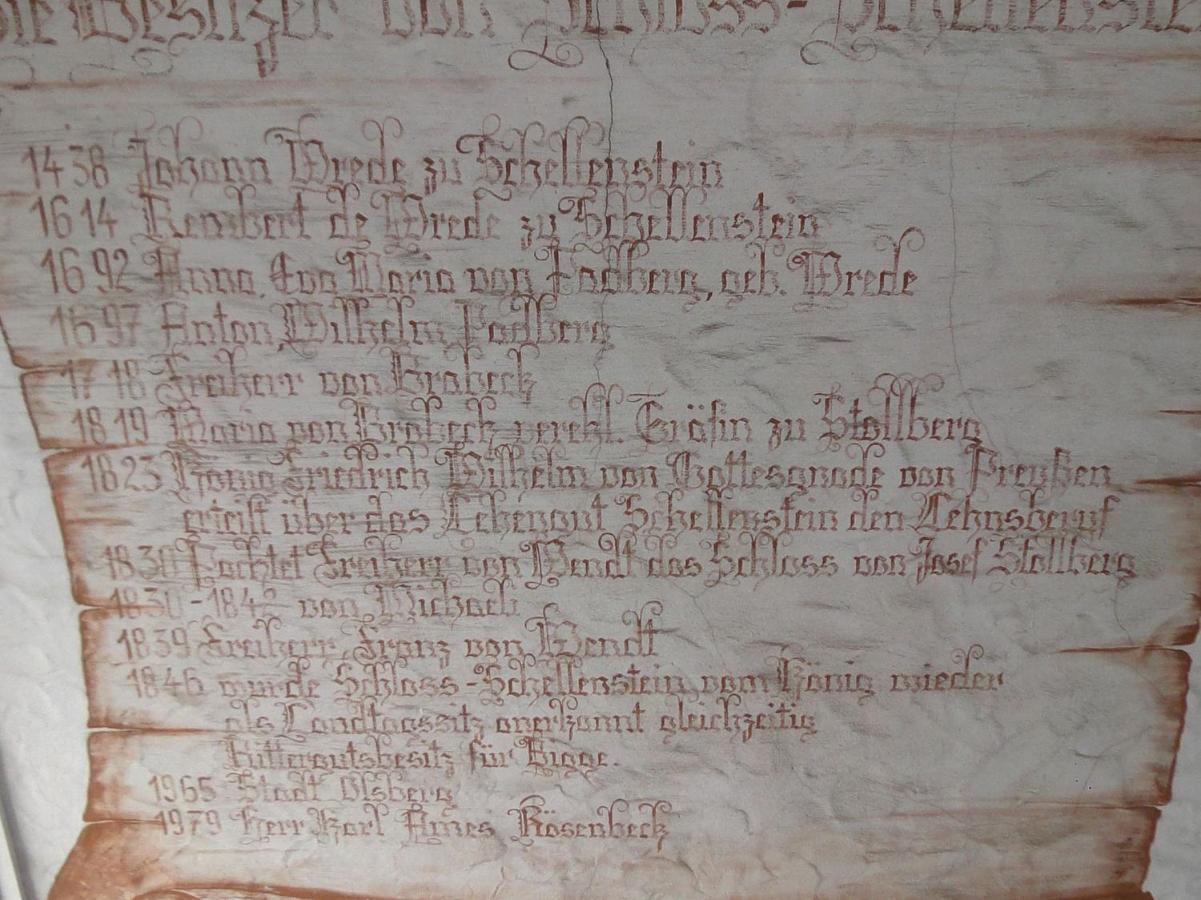 Die Besitzer von Schloss-Schellenstein
1438 Johann Wrede zu Schellenstein
1614 Rembert de Wrede zu Schellenstein
1692 Anna, Eva Maria von Padberg, geb. Wrede
1697 Anton, Wilhelm Padberg
1718 Freiherr von Brabeck
1819 Maria von Brabeck verehl. Gräfin zu Stollberg
1823 König Friedrich Wilhelm von Gottesgnade von Preußen
erteilt über das Lehengut Schellenstein den Lehnsberuf
1830 Pachtet Freiherr von Wendt das Schloss von Josef Stollberg
1830-1842 von Michael
1839 Freiherr Franz von Wendt
1846 wurde Schloss-Schellenstein vom König wieder
als Landtagssitz anerkannt gleichzeitig
Rittergutsbesitz für Bigge.
1965 Stadt Olsberg
1979 Herr Karl Ames Rösenbeck